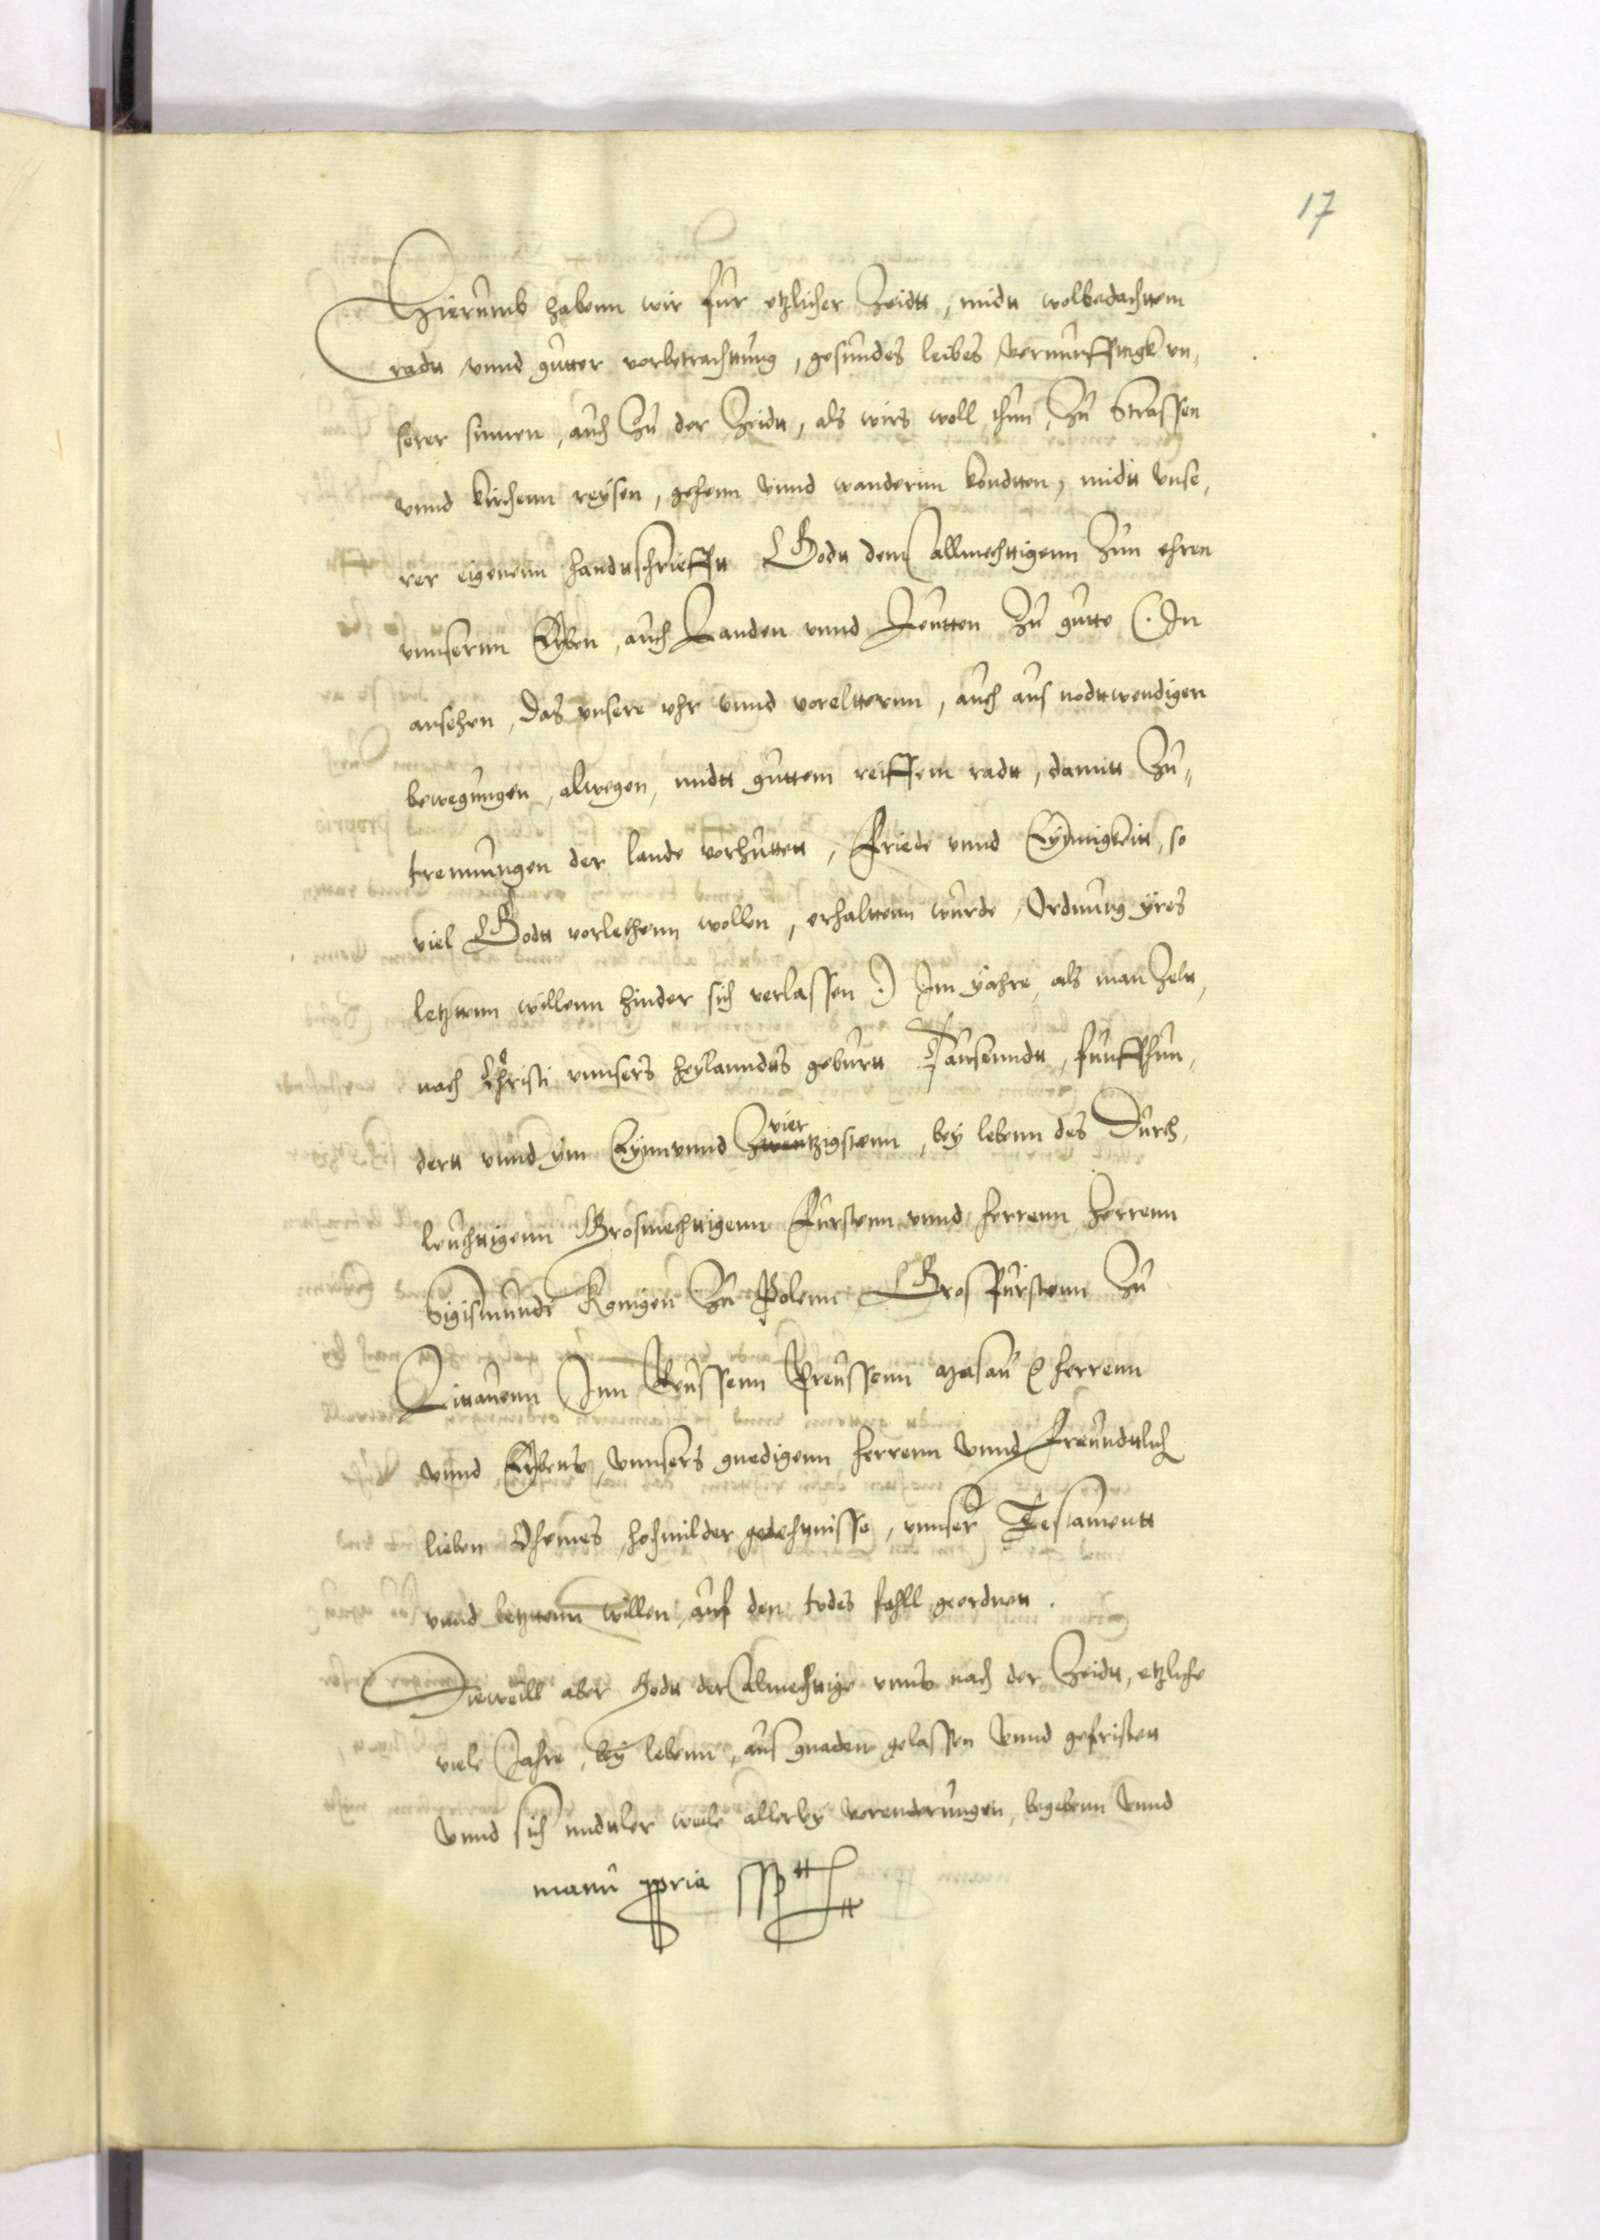 17
Hierumb habenn wir fur etzlicher Zeidtt, midtt wolbedachttem
radtt vnnd gutter vorbetrachttung, gesundes leibes vernunfftigk vn,
serer sinnen, auch Zu der Zeidtt, als wirs woll thun, Zu Strassen
vnnd kirchenn reysen, gehenn vnnd wandernn kondtten, midtt vnse,
rer eigenenn handttschriefftt Godtt dem allmechttigenn Zun ehren
vnnsernn Erben, auch Landen vnnd Leutten Zu gutte (. In
ansehen, das vnsere vhr vnnd vorelternn, auch aus nodttwendigen
bewegungen, alwegen, midtt guttem reiffem radtt, damitt Zu,,
trennungen der lande vorhuttett, Friede vnnd Eynnigkeitt, so
viel Godtt vorleihenn wollen, erhalttenn wurde, Ordnung yres
letzttenn willenn hinder sich verlassen .) Im yahre, als man Zeltt,
nach Christi vnnsers heylanndtts geburtt Tausenndtt, funffhun,
dertt vnnd ym Eynnvnnd Zwentzigstenn, vier bey lebenn des Durch,
leuchttigenn Grosmechttigenn Furstenn vnnd herrenn, herrenn
Sigismundi Konigen Zu Polenn, Gros Furstenn Zu
Littauenn Inn Reussenn Preussenn Masau etc herrenn
vnnd Erbens, vnnsers gnedigenn herrenn vnnd freundttlich
lieben Ohemes, hochmilder gedechtnisse, vnnser Testamentt
vnnd letzttenn willen auf den todes fahll geordnett.
Dieweill aber Godtt der Almechttige vnns nach der Zeidtt, etzliche
viele Jahre, bey lebenn, aus gnaden gelassen vnnd gefristett
vnnd sich midtler weile allerley verenderungen, begebenn vnnd
manu ppria sspt